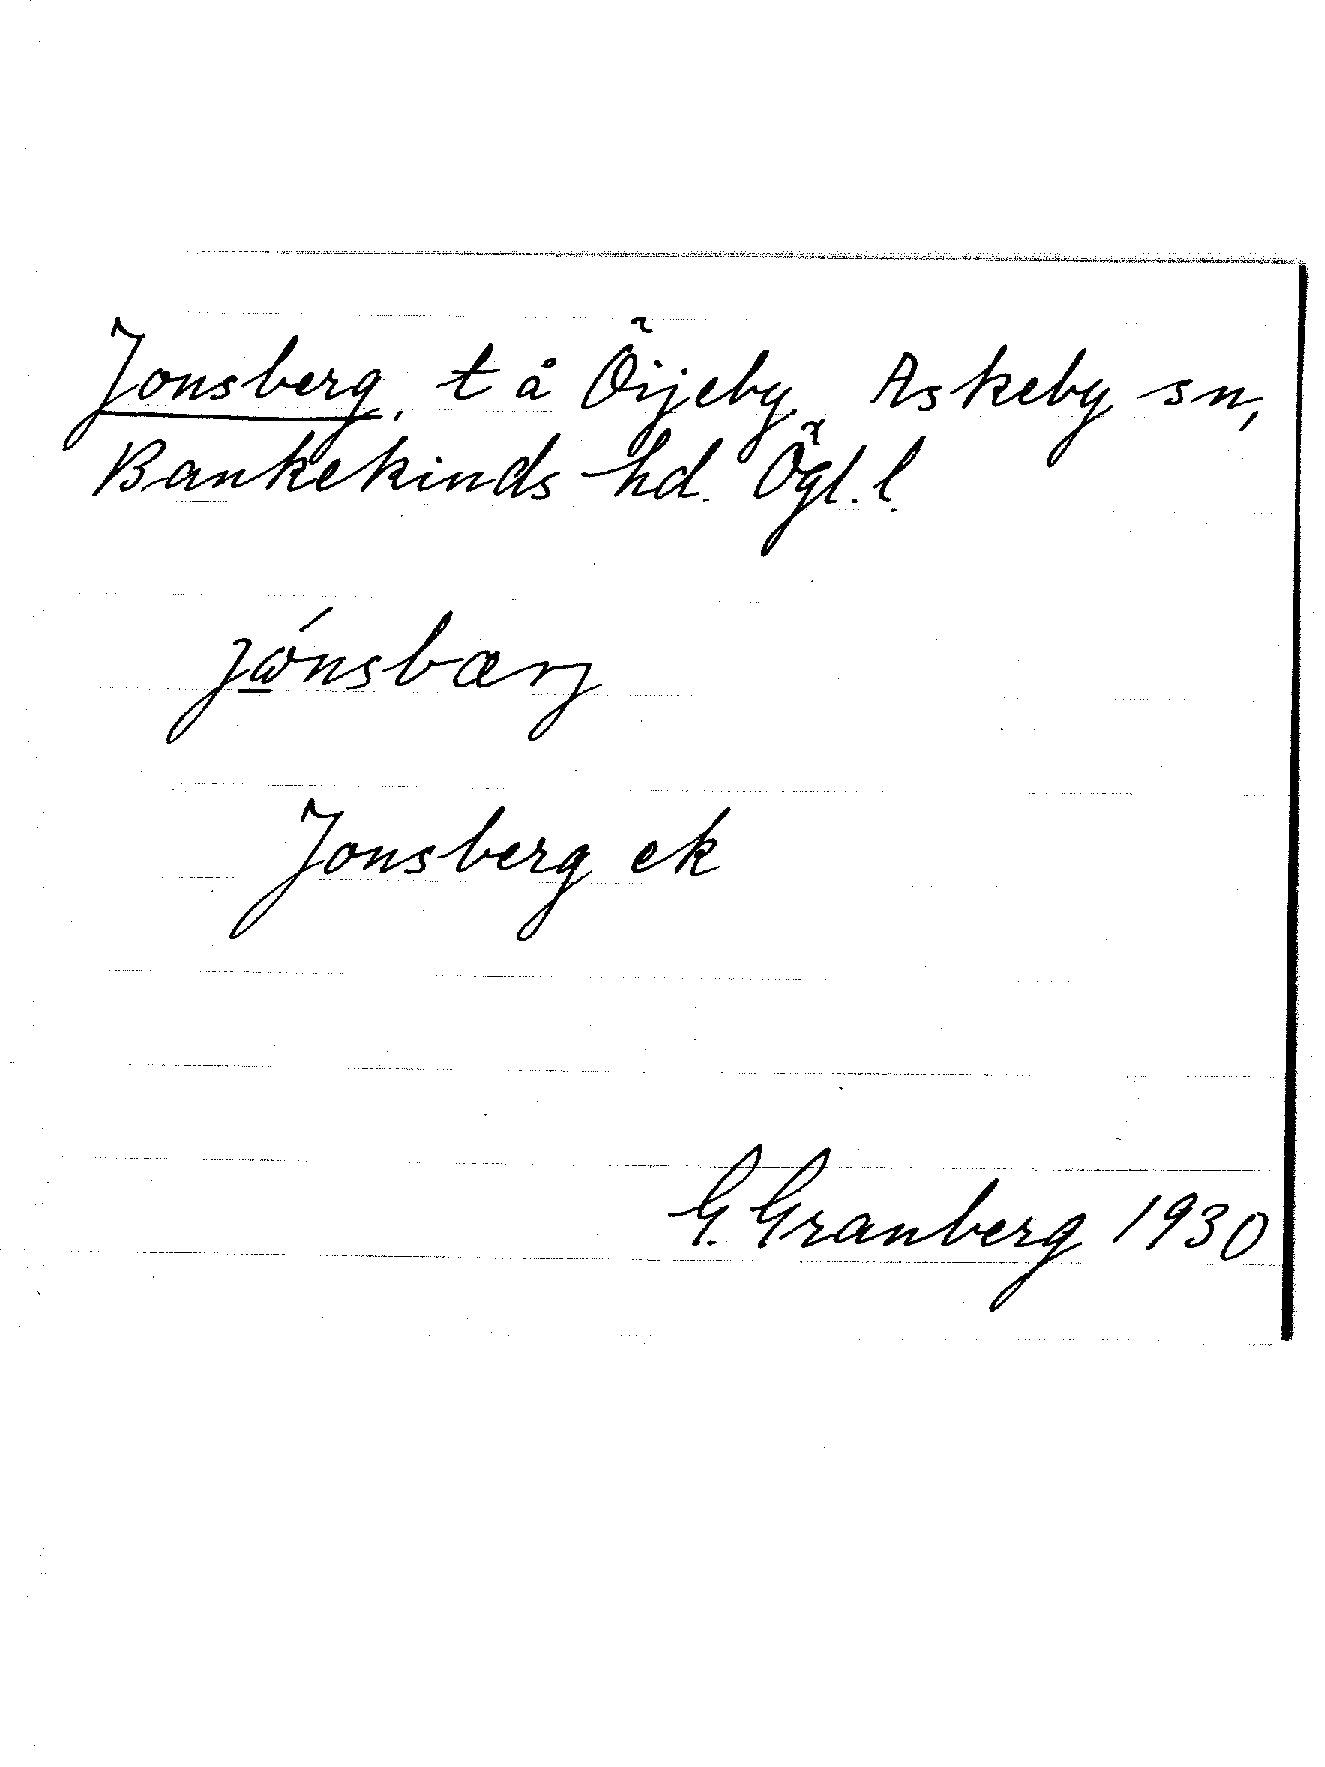 Jonsberg, t å Öijeby, Askeby sn,
Bankekinds hd. Ögl. l.
jώ̲nsbærj
Jonsberg ek
G. Granberg 1930